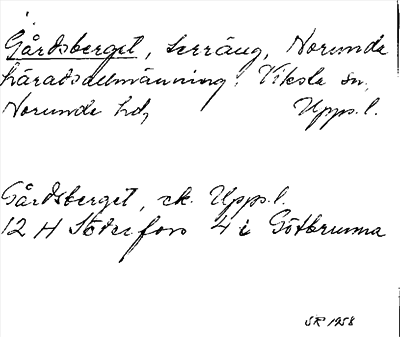 Gårdsberget, terräng, Norunda
häradsallmänning, Viksta sn,
Norunda hd, Upps. l.
Gårdsberget, ek. Upps. l.
12 H Söderfors 4 i Götbrunna
SR 1958